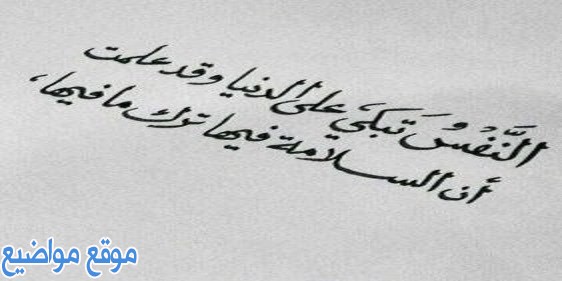 النَّفْسُ تَبكي على الدنيا وقد علمت
أن السلامة فيها ترك ما فيها،
موقع مواضيع